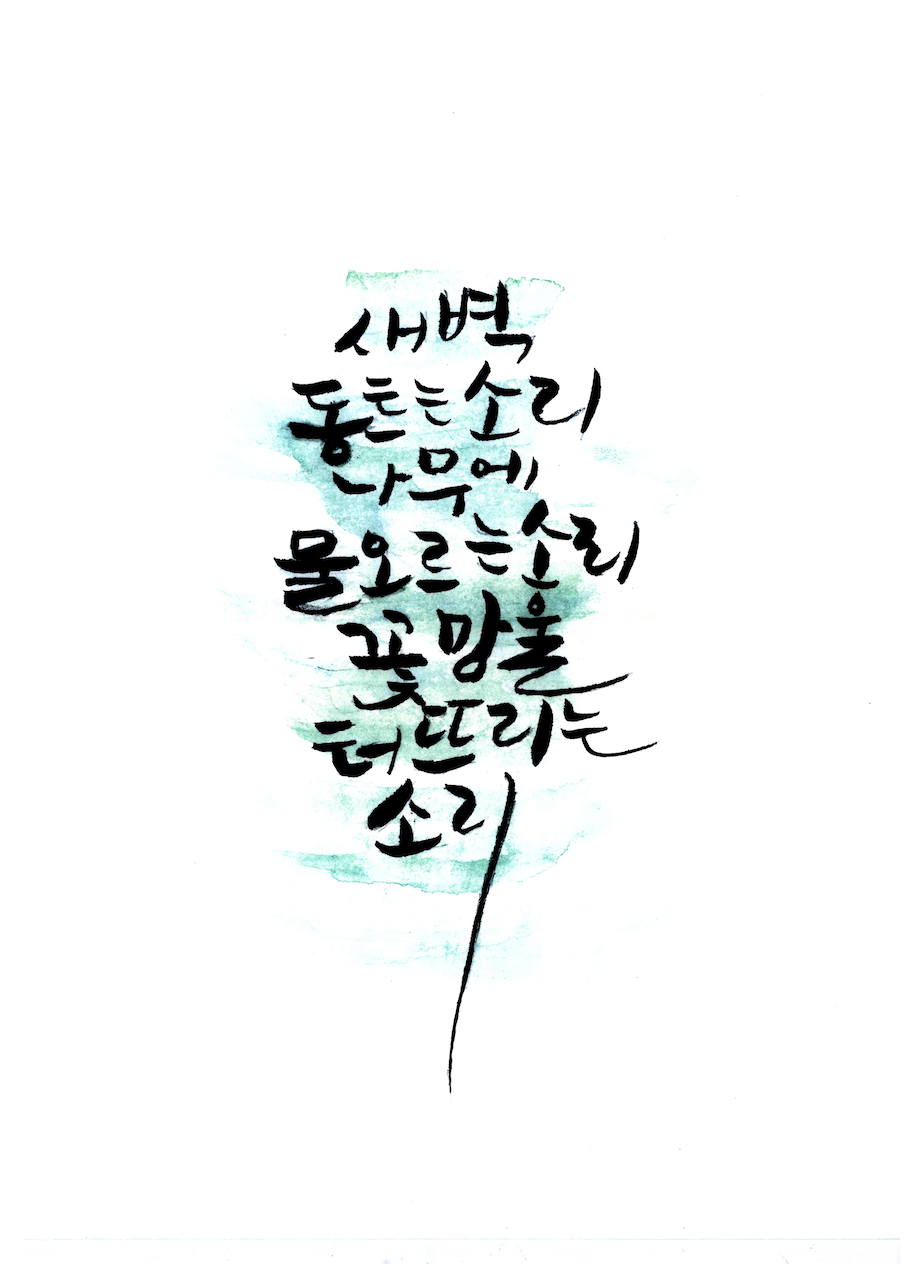 새벽
동트는 소리
나무에
물오르는 소리
꽃망울
터뜨리는
소리